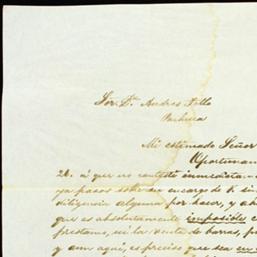 Sor. Dn. Andres Tello
Pachuca
Mi estimado Señor
Oportunam
24. á que no contesté inmediata
ya pasos sobre su encargo de V. sin
diligencia alguna por hacer, y ah
que es absolutamente imposible c
prestamo, ni la venta de barras, p
y aun aqui, es preciso que sea en